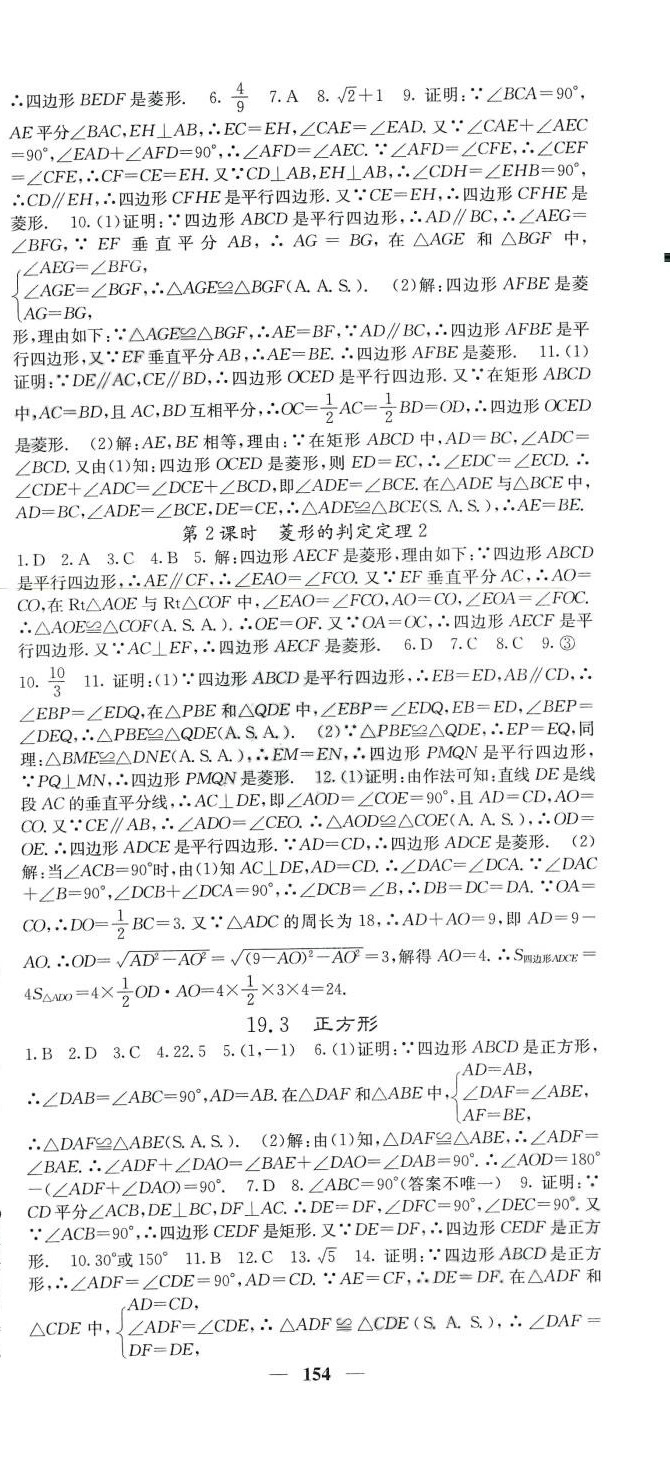 ∴四边形 BEDF 是菱形. 6. 4/9 7. A 8. √2+1 9. 证明:∵∠BCA=90°,
AE 平分∠BAC,EH⊥AB,∴EC=EH,∠CAE=∠EAD. 又∵∠CAE+∠AEC
=90°,∠EAD+∠AFD=90°,∴∠AFD=∠AEC. ∵∠AFD=∠CFE,∴∠CEF
=∠CFE,∴CF=CE=EH. 又∵CD⊥AB,EH⊥AB,∴∠CDH=∠EHB=90°,
∴CD∥EH,∴四边形 CFHE 是平行四边形. 又∵CE=EH,∴四边形 CFHE 是
菱形. 10. (1)证明:∵四边形 ABCD 是平行四边形,∴AD∥BC,∴∠AEG=
∠BFG,∵ EF 垂直平分 AB,∴ AG = BG, 在 △AGE 和 △BGF 中,
∠AEG=∠BFG,
∠AGE=∠BGF,∴△AGE≌△BGF(A. A. S.). (2)解:四边形 AFBE 是菱
AG=BG,
形,理由如下:∵△AGE≌△BGF,∴AE=BF,∵AD∥BC,∴四边形 AFBE 是平
行四边形,又∵EF 垂直平分 AB,∴AE=BE. ∴四边形 AFBE 是菱形. 11. (1)
证明:∵DE∥AC,CE∥BD,∴四边形 OCED 是平行四边形. 又∵在矩形 ABCD
中,AC=BD,且 AC,BD 互相平分,∴OC=1/2AC=1/2BD=OD,∴四边形 OCED
是菱形. (2)解:AE,BE 相等,理由:∵在矩形 ABCD 中,AD=BC,∠ADC=
∠BCD. 又由(1)知:四边形 OCED 是菱形,则 ED=EC,∴∠EDC=∠ECD. ∴
∠CDE+∠ADC=∠DCE+∠BCD,即∠ADE=∠BCE. 在△ADE 与△BCE 中,
AD=BC,∠ADE=∠BCE,DE=CE,∴△ADE≌△BCE(S. A. S.),∴AE=BE.
第 2 课时 菱形的判定定理 2
1. D 2. A 3. C 4. B 5. 解:四边形 AECF 是菱形,理由如下:∵四边形 ABCD
是平行四边形,∴AE∥CF,∴∠EAO=∠FCO. 又∵EF 垂直平分 AC,∴AO=
CO,在 Rt△AOE 与 Rt△COF 中,∠EAO=∠FCO,AO=CO,∠EOA=∠FOC.
∴△AOE≌△COF(A. S. A.). ∴OE=OF. 又∵OA=OC,∴四边形 AECF 是平
行四边形. 又∵AC⊥EF,∴四边形 AECF 是菱形. 6. D 7. C 8. C 9. ③
10. 10/3 11. 证明:(1)∵四边形 ABCD 是平行四边形,∴EB=ED,AB∥CD,∴
∠EBP=∠EDQ,在△PBE 和△QDE 中,∠EBP=∠EDQ,EB=ED,∠BEP=
∠DEQ,∴△PBE≌△QDE(A. S. A.). (2)∵△PBE≌△QDE,∴EP=EQ,同
理:△BME≌△DNE(A. S. A.),∴EM=EN,∴四边形 PMQN 是平行四边形,
∵PQ⊥MN,∴四边形 PMQN 是菱形. 12. (1)证明:由作法可知:直线 DE 是线
段 AC 的垂直平分线,∴AC⊥DE,即∠AOD=∠COE=90°,且 AD=CD,AO=
CO. 又∵CE∥AB,∴∠ADO=∠CEO. ∴△AOD≌△COE(A. A. S.),∴OD=
OE. ∴四边形 ADCE 是平行四边形. ∵AD=CD,∴四边形 ADCE 是菱形. (2)
解:当∠ACB=90°时,由(1)知 AC⊥DE,AD=CD. ∴∠DAC=∠DCA. ∵∠DAC
+∠B=90°,∠DCB+∠DCA=90°,∴∠DCB=∠B,∴DB=DC=DA. ∵OA=
CO,∴DO=1/2BC=3. 又∵△ADC 的周长为 18,∴AD+AO=9,即 AD=9-
AO. ∴OD=√(AD²-AO²)=√((9-AO)²-AO²)=3,解得 AO=4. ∴S四边形ADCE=
4S△ADO=4×1/2OD·AO=4×1/2×3×4=24.
19.3 正方形
1. B 2. D 3. C 4. 22.5 5. (1,-1) 6. (1)证明:∵四边形 ABCD 是正方形,
AD=AB,
∴∠DAB=∠ABC=90°,AD=AB. 在△DAF 和△ABE 中,∠DAF=∠ABE,
AF=BE,
∴△DAF≌△ABE(S. A. S.). (2)解:由(1)知,△DAF≌△ABE,∴∠ADF=
∠BAE. ∴∠ADF+∠DAO=∠BAE+∠DAO=∠DAB=90°. ∴∠AOD=180°
-(∠ADF+∠DAO)=90°. 7. D 8. ∠ABC=90°(答案不唯一) 9. 证明:∵
CD 平分∠ACB,DE⊥BC,DF⊥AC. ∴DE=DF,∠DFC=90°,∠DEC=90°. 又
∵∠ACB=90°,∴四边形 CEDF 是矩形. 又∵DE=DF,∴四边形 CEDF 是正方
形. 10. 30°或 150° 11. B 12. C 13. √5 14. 证明:∵四边形 ABCD 是正方
形,∴∠ADF=∠CDE=90°,AD=CD. ∵AE=CF,∴DE=DF. 在△ADF 和
AD=CD,
△CDE 中,∠ADF=∠CDE,∴ △ADF ≌ △CDE (S. A. S.),∴ ∠DAF =
DF=DE,
— 154 —